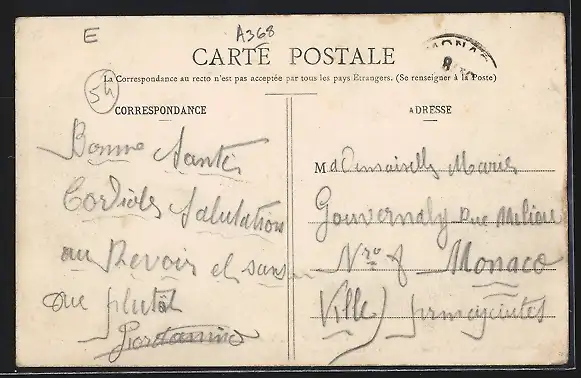 E
A368
CARTE POSTALE
MONACO
8
La Correspondance au recto n'est pas acceptée par tous les pays Etrangers. (Se renseigner à la Poste)
54
CORRESPONDANCE
ADRESSE
Bonne Santé
Cordiales Salutations
au Revoir et sans
que plutôt
Giordanino
M
Marie
Gouvernaly Rue
Nro
Monaco
Ville)